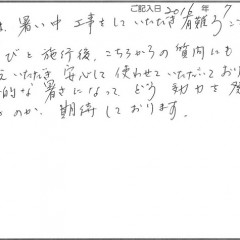 ご記入日 2016 年 7
暑い中 工事をしていただき 有難うご
びと 施行後、こちらからの質問にも
いただき 安心して 使わせていただいており
的な暑さになって どう 効力を発
のか、期待しております。